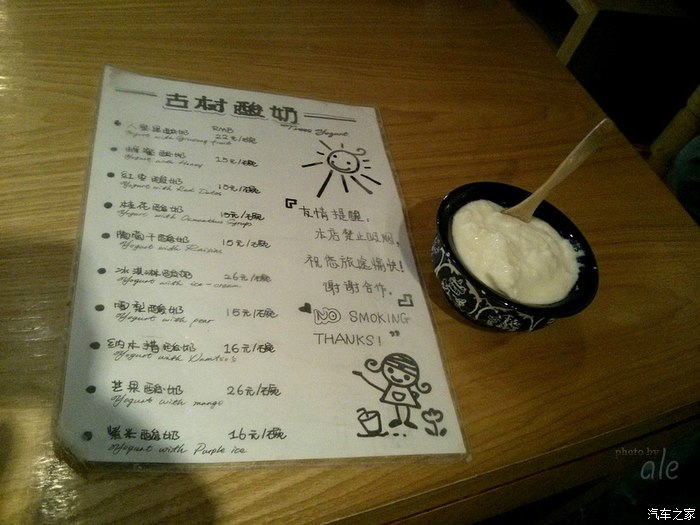 古村酸奶
Yogurt
RMB
22元/碗
Yogurt with Ginseng fruit
蜂蜜酸奶 15元/碗
Yogurt with Honey
红枣酸奶 15元/碗
Yogurt with Red Dates
桂花酸奶 15元/碗
Yogurt with Osmanthus Syrups
葡萄干酸奶 15元/碗
Yogurt with Raisins
冰淇淋酸奶 26元/碗
Yogurt with ice-cream
雪梨酸奶 15元/碗
Yogurt with pear
纳木措酸奶 16元/碗
Yogurt with Namtso's
芒果酸奶 26元/碗
Yogurt with mango
紫米酸奶 16元/碗
Yogurt with Purple ice
『友情提醒,
本店禁止吸烟,
祝您旅途愉快!
谢谢合作。』
"NO SMOKING
THANKS!"
photo by
ale
汽车之家